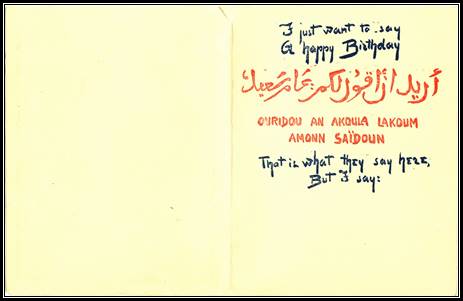 I just want to say
A happy Birthday
أريد أن أقول لكم: عام سعيد،
OURIDOU AN AKOULA LAKOUM
AMONN SAÏDOUN
That is what they say HERE,
But I say: